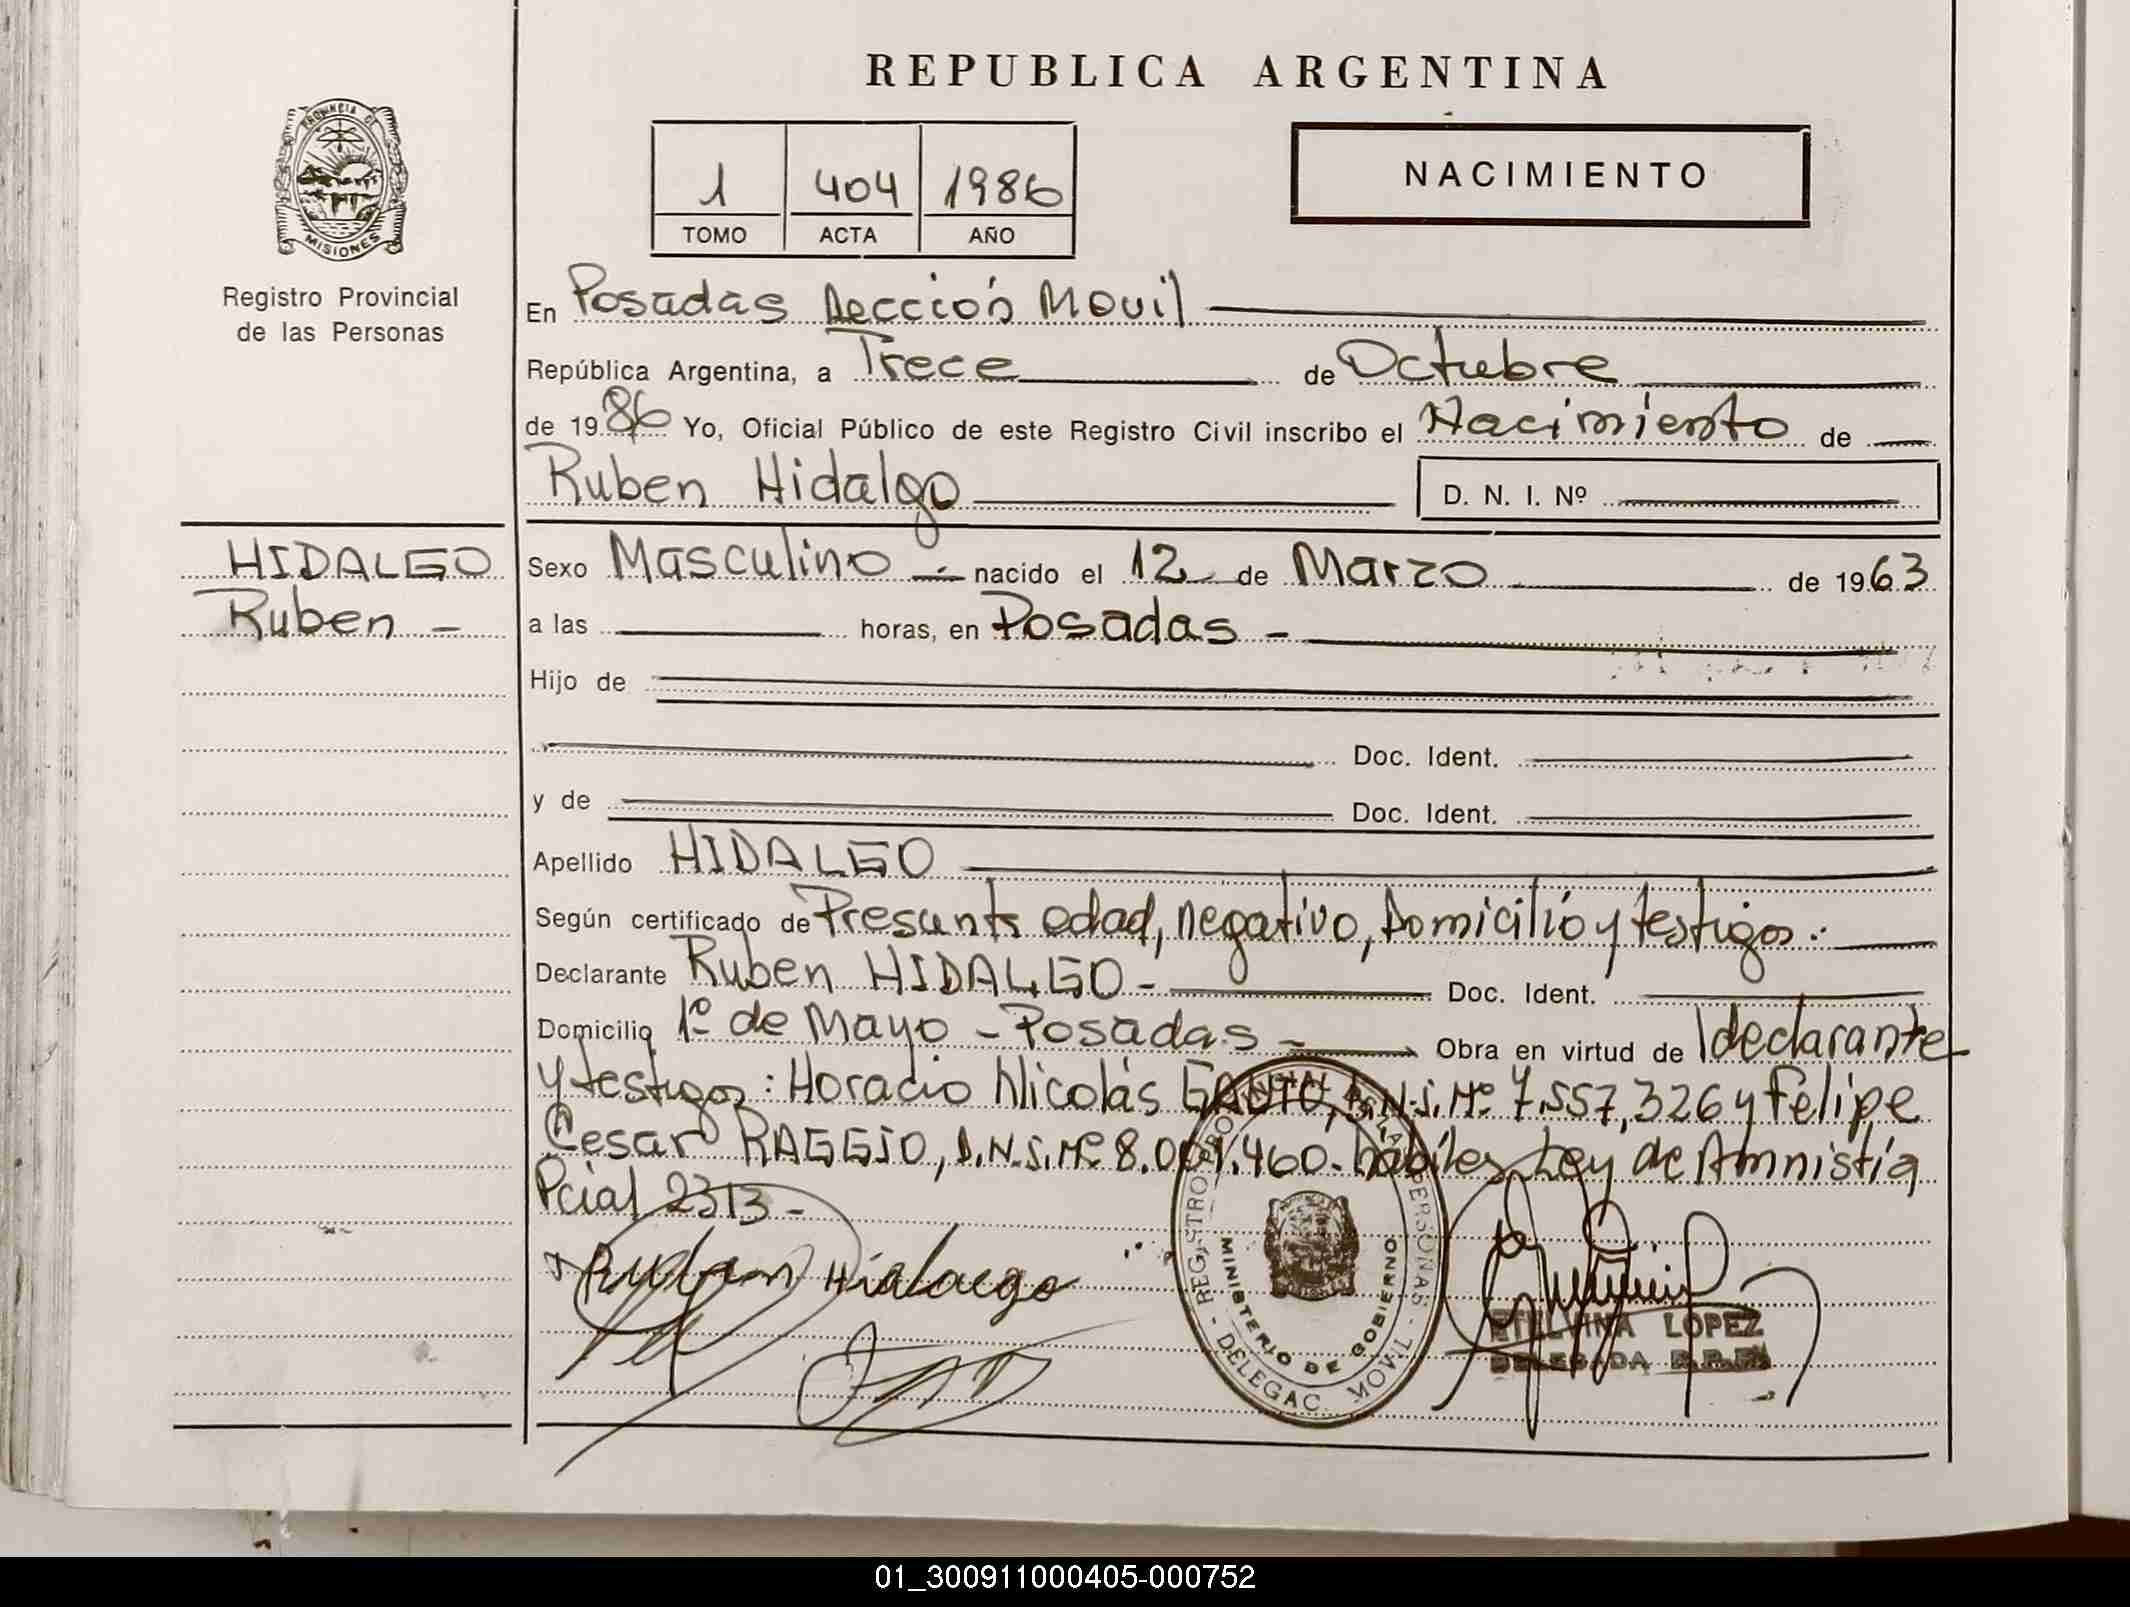 REPUBLICA ARGENTINA
PROVINCIA DE
MISIONES
Registro Provincial
de las Personas
1 404 1986
TOMO ACTA AÑO
NACIMIENTO
En Posadas Sección Movil
República Argentina, a Trece de Octubre
de 1986 Yo, Oficial Público de este Registro Civil inscribo el Nacimiento de
Ruben Hidalgo D. N. I. Nº
HIDALGO
Ruben -
Sexo Masculino - nacido el 12 de Marzo de 1963
a las horas, en Posadas -
Hijo de
Doc. Ident.
y de Doc. Ident.
Apellido HIDALGO
Según certificado de Presunta edad, negativo, Domicilio y testigos.
Declarante Ruben HIDALGO - Doc. Ident.
Domicilio 1º de Mayo - Posadas - Obra en virtud de declarante
y testigos: Horacio Nicolás GAUTO, D.N.I. Nº 7.557,326 y Felipe
Cesar RAGGIO, D.N.I. Nº 8.001.460. hábiles Ley de Amnistía
Pcial 2313 -
Ruben Hidalgo
REGISTRO PROVINCIAL DE LAS PERSONAS
MINISTERIO DE GOBIERNO
- DELEGAC. MOVIL -
ETELVINA LOPEZ
DELEGADA R.P.P.
01_300911000405-000752